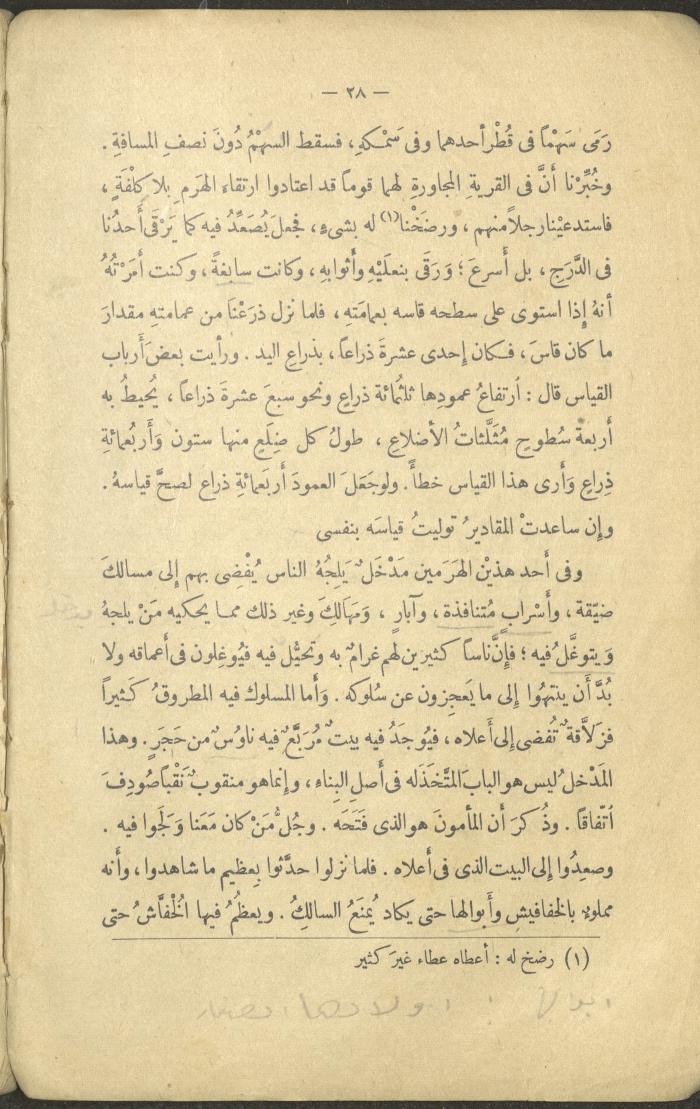 — ٢٨ —
رَمَى سَهْمًا فى قُطْر أحدهما وفى سَمْكهِ ، فسقط السهْمُ دُونَ نصفِ المسافةِ .
وخُبِّرْنا أنَّ فى القريةِ المجاورةِ لهما قوماً قد اعتادوا ارتقاءَ الهَرمِ بلا كلْفَةٍ ،
فاستدعيْنا رجلاً منهم ، ورضَخْنا(١) له بشىءٍ ، فجعلَ يُصَعِّدُ فيه كما يَرْقَى أَحدُنا
فى الدَّرَجِ ، بل أَسرعَ ؛ وَرَقَى بنعلَيْهِ وأَثوابِهِ ، وكانت سابغةً ، وكنت أَمَرْتُهُ
أنهُ إِذا استوى على سطحه قاسه بعمامَتهِ ، فلما نزل ذرَعْنَا من عمامتهِ مقدارَ
ما كان قاسَ ، فكان إحدى عشرةَ ذراعاً ، بذراعِ اليد . ورأيت بعضَ أَرباب
القياس قال : ارتفاعُ عمودِها ثلثُمائة ذراعٍ ونحو سبعَ عشرةَ ذراعاً ، يُحيطُ به
أَربعةُ سُطوحٍ مُثَلَّثاتُ الأضلاعِ ، طولُ كل ضِلَعٍ منها ستون وَأَربُعمائةِ
ذِراعٍ وَأَرى هذا القياس خطأً . ولو جَعَلَ العمودَ أَربَعمائةِ ذراع لصحَّ قياسهُ .
وإن ساعدتْ المقاديرُ توليتُ قياسَه بنفسى
وفى أَحد هذيْن الهَرَمين مَدْخَلٌ يَلِجُهُ الناس يُفْضِى بهم إِلى مسالكَ
ضيّقة ، وأَسْرابٍ مُتنافذة ، وآبارٍ ، وَمَهَالِكَ وغير ذلك مما يحكيه مَنْ يلجهُ
وَيتوغَّلُ فيه ؛ فإِنَّ ناساً كثيرين لهم غرامٌ به وتحيُّلٌ فيه فيُوغِلون فى أَعماقه ولا
بُدَّ أَن ينتهُوا إِلى ما يَعجِزون عن سُلوكه . وأَما المسلوك فيه المطروقُ كَثيراً
فزلاَّقةٌ تُفضى إلى أَعلاه ، فيُوجَدُ فيه بيتٌ مُربَّعٌ فيه ناوُسٌ من حَجَرٍ . وهذا
المَدْخلُ ليس هو البابَ المتَّخذَ له فى أَصلِ البِناء ، وإنما هو منقوبٌ نَقْباً صُودِفَ
اتّفاقًا . وذُكرَ أَن المأمونَ هو الذى فَتَحَه . وجُلُّ مَنْ كان مَعَنا وَلَجوا فيه .
وصعِدُوا إِلى البيت الذى فى أَعلاه . فلما نزلوا حدَّثوا بِعظيم ما شاهدوا ، وأَنه
مملوءٌ بالخفافيشِ وأَبوالها حتى يكاد يُمنَعُ السالكُ . ويعظُمُ فيها الخُفَّاشُ حتى
(١) رضخ له : أعطاه عطاء غيرَ كثير
ابوالها : اولادها الصغار